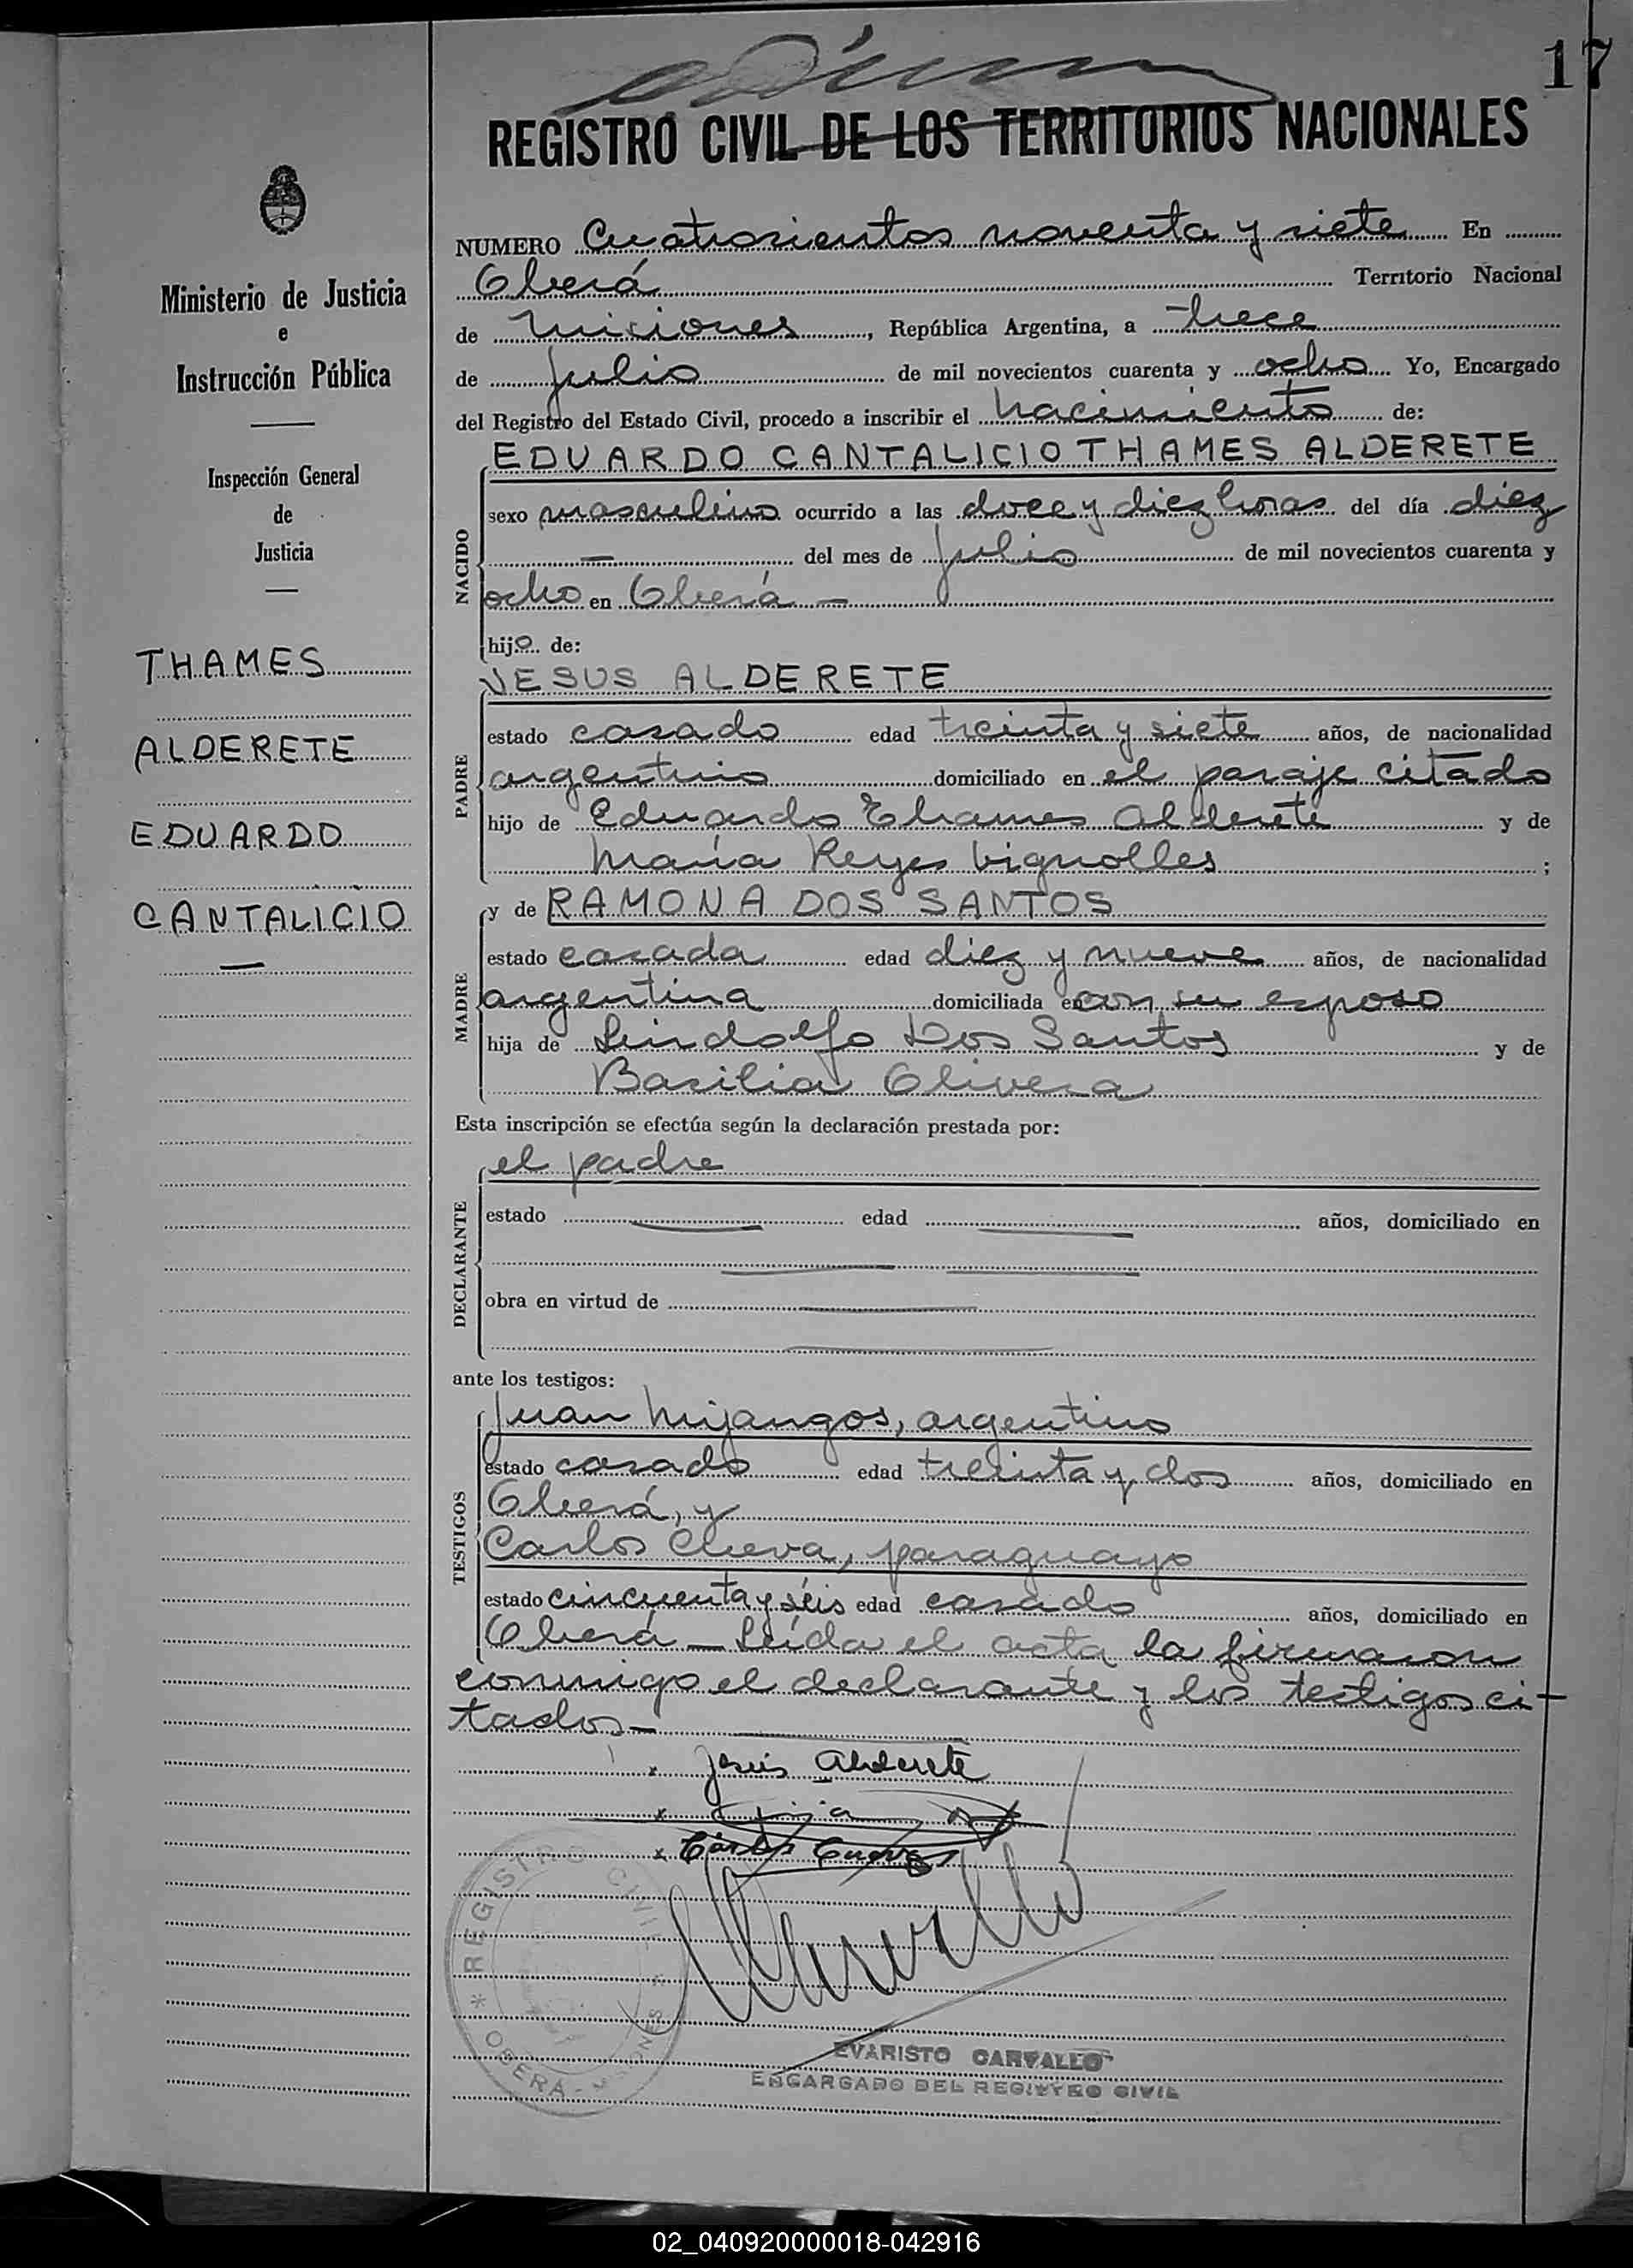 17
REGISTRO CIVIL DE LOS TERRITORIOS NACIONALES
Ministerio de Justicia
e
Instrucción Pública
Inspección General
de
Justicia
THAMES
ALDERETE
EDUARDO
CANTALICIO
NUMERO Cuatrosientos noventa y siete En
Oberá Territorio Nacional
de Misiones, República Argentina, a trece
de Julio de mil novecientos cuarenta y ocho Yo, Encargado
del Registro del Estado Civil, procedo a inscribir el nacimiento de:
NACIDO
EDUARDO CANTALICIO THAMES ALDERETE
sexo masculino ocurrido a las doce y diez horas del día diez
— del mes de Julio de mil novecientos cuarenta y
ocho en Oberá —
hijo de:
PADRE
JESUS ALDERETE
estado casado edad treinta y siete años, de nacionalidad
argentino domiciliado en el paraje citado
hijo de Eduardo Thames Alderete y de
María Reyes Vignolles ;
MADRE
y de RAMONA DOS SANTOS
estado casada edad diez y nueve años, de nacionalidad
argentina domiciliada en con su esposo
hija de Lindolfo Dos Santos y de
Basilia Olivera
Esta inscripción se efectúa según la declaración prestada por:
DECLARANTE
el padre
estado edad años, domiciliado en
obra en virtud de
ante los testigos:
TESTIGOS
Juan Mijangos, argentino
estado casado edad treinta y dos años, domiciliado en
Oberá, y
Carlos Cueva, paraguayo
estado cincuenta y séis edad casado años, domiciliado en
Oberá — Leída el acta la firmaron
conmigo el declarante y los testigos ci-
tados —
x Jesús Alderete
x Carlos Cueva
REGISTRO CIVIL
* OBERA - MISIONES *
EVARISTO CARVALLO
ENCARGADO DEL REGISTRO CIVIL
02_040920000018-042916